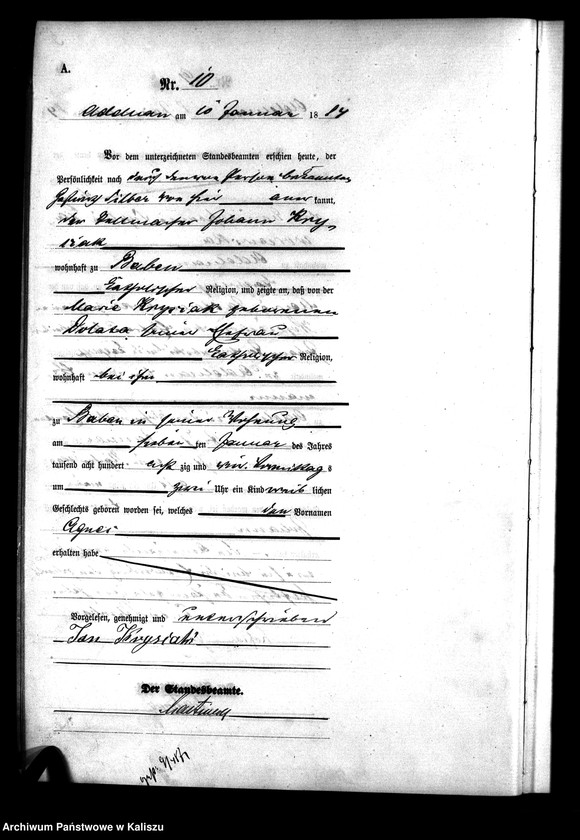 A.
Nr. 10
Adelnau am 10 Januar 1884
Vor dem unterzeichneten Standesbeamten erschien heute, der
Persönlichkeit nach durch den von Person bekannten
Silber von hier anerkannt,
der Johann Kry-
siak
wohnhaft zu Baben
katholischer Religion, und zeigte an, daß von der
Marie Krysiak geborenen
Dolata seiner Ehefrau
katholischer Religion,
wohnhaft bei ihm
zu Baben in seiner Wohnung
am sieben ten Januar des Jahres
tausend acht hundert acht zig und vier Vormittags
um zwei Uhr ein Kind weib lichen
Geschlechts geboren worden sei, welches den Vornamen
Agnes
erhalten habe
Vorgelesen, genehmigt und unterschrieben
Jan Krysiak
Der Standesbeamte.
Archiwum Państwowe w Kaliszu